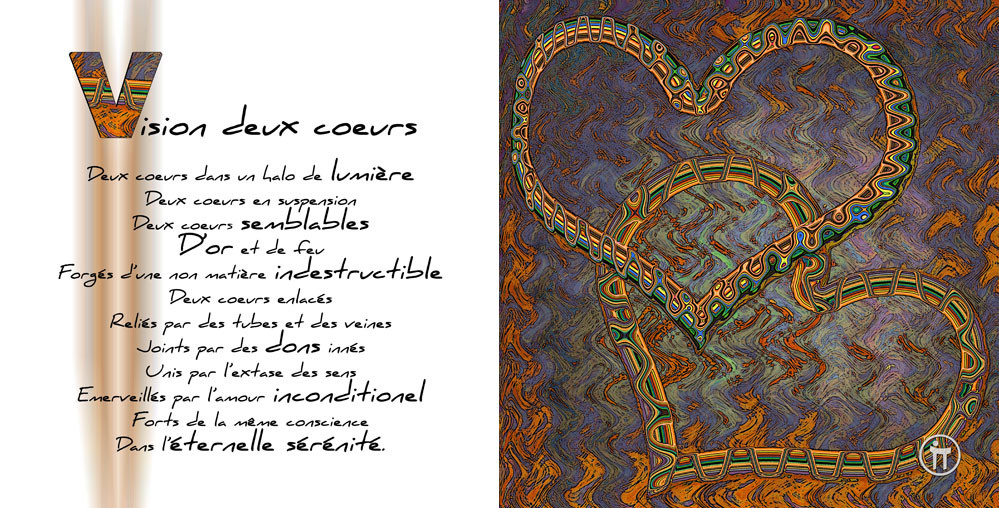 Vision deux coeurs
Deux coeurs dans un halo de lumière
Deux coeurs en suspension
Deux coeurs semblables
D'or et de feu
Forgés d'une non matière indestructible
Deux coeurs enlacés
Reliés par des tubes et des veines
Joints par des dons innés
Unis par l'extase des sens
Emerveillés par l'amour inconditionel
Forts de la même conscience
Dans l'éternelle sérénité.